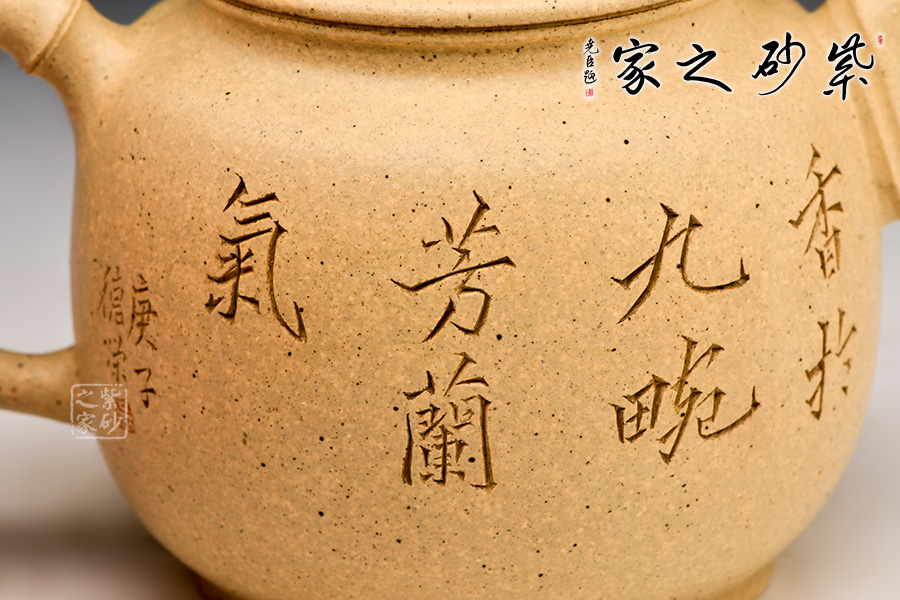 紫砂之家
尧臣题
香於
九畹
芳蘭
氣
庚子
德榮
紫砂之家